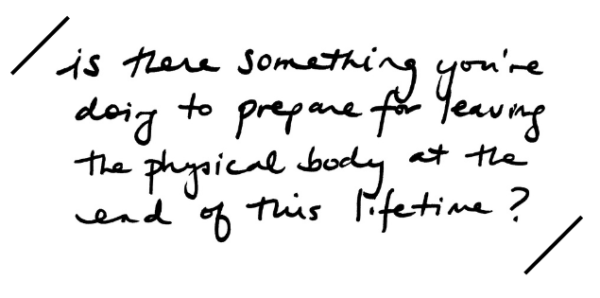 is there something you're
doing to prepare for leaving
the physical body at the
end of this lifetime?